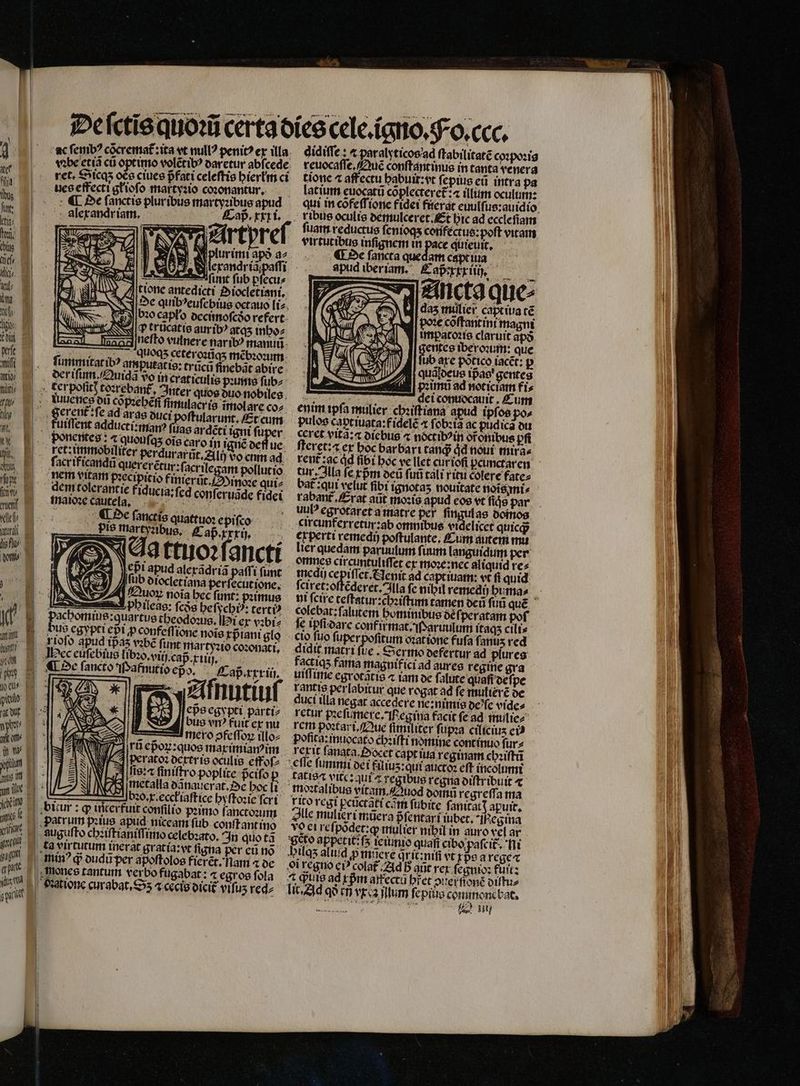 De sctis quoꝝ certa dies cele. igno. Fo. ccc.
ac senibꝰ cōcremat᷒: ita vt nullꝰ penitꝰ ex illa
vrbe etiā cū optimo volētibꝰ daretur abscede
ret. Sicqꝫ oēs ciues p̄fati celestis hierlm̄ ci
ues effecti gl̄ioso martyrio coronantur.
¶ De sanctis pluribus martyribus apud
alexandriam. Cap. xxxi.
Artyres
plurimi apō a⸗
lexandriā passi
sunt sub p̄secu⸗
tione antedicti Diocletiani.
De quibꝰ eusebius octauo li⸗
bro caplo decimosc̄do refert
ꝙ trūcatis auribꝰ atqꝫ inho⸗
nesto vulnere naribꝰ manuū
quoqꝫ ceteroꝝqꝫ mēbrorum
summitatibꝰ amputatis: trūcū sinebāt abire
derisum. Quidā ꝟo in craticulis prunis sub⸗
terpositꝭ torrebant᷒. Inter quos duo nobiles
iuuenes dū cōprehēsi simulacris imolare co⸗
gerent᷒: se ad aras duci postularunt. Et cum
fuissent adducti: manꝰ suas ardēti igni super
ponentes: ⁊ quousqꝫ oīs caro in ignē deflue
ret: immobiliter perdurarūt. Alij ꝟo cum ad
sacrificandū quererētur: sacrilegam pollutio
nem vitam precipitio finierūt. Minore qui⸗
dem tolerantie fiducia: sed conseruāde fidei
maiore cautela.
¶ De sanctis quattuor episco
pis martyribus. Cap. xxxij.
Qattuor sancti
ep̄i apud alexādriā passi sunt
sub diocletiana persecutione.
Quoꝝ noīa hec sunt: primus
phileas: sc̄ds hesychiꝰ: tertiꝰ
pachomius: quartus theodorus. Hi ex vrbi⸗
bus egypti ep̄i ꝓ confessione noīs xp̄iani glo
rioso apud ip̄aꝫ vrbē sunt martyrio coronati.
Hec eusebius libro. viij. cap. xiij.
¶ De sancto Pafnutio ep̄o. Cap. xxxiij.
Afnutius
ep̄s egypti parti⸗
bus vnꝰ fuit ex nu
mero ↄfessoꝝ illo⸗
rū ep̄oꝝ: quos maximianꝰ im
peratoꝛ dextris oculis effos⸗
sis: ⁊ sinistro poplite p̄ciso ꝑ
metalla dānauerat. De hoc li
bro. x. eccl̄iastice hystorie scri
bitur: ꝙ interfuit consilio primo sanctorum
patrum prius apud niceam sub constantino
augusto christianissimo celebrato. In quo tā
ta virtutum inerat gratia: vt signa per eū nō
minꝰ ꝙ̄ dudū per apostolos fierēt. Nam ⁊ de
mones tantum verbo fugabat: ⁊ egros sola
oratione curabat. Sꝫ ⁊ cecis dicit᷒ visus red⸗
didisse: ⁊ paralyticos ad stabilitatē corporis
reuocasse. Quē constantinus in tanta venera
tione ⁊ affectu habuit: vt sepius eū intra pa
latium euocatū cōplecteret᷒: ⁊ illum oculum:
qui in cōfessione fidei fuerat euulsus: auidio
ribus osculis demulceret. Et hic ad ecclesiam
suam reductus senioqꝫ confectus: post vitam
virtutibus insignem in pace quieuit.
¶ De sancta quedam captiua
apud iberiam. Cap. xxxiiij.
Sancta que⸗
daꝫ mulier captiua tē
pore cōstantini magni
imperatoris claruit apō
gentes iberorum: que
sub axe pōtico iacēt: ꝑ
quā deus ip̄as gentes
primū ad noticiam fi⸗
dei conuocauit. Cum
enim ipsa mulier christiana apud ipsos po⸗
pulos captiuata: fidelē ⁊ sobriā ac pudicā du
ceret vitā: ⁊ diebus ⁊ noctibꝰ in orōnibus ꝑsi
steret: ⁊ ex hoc barbari tanꝙ̄ qd̄ noui mira⸗
rent᷒: ac qd̄ sibi hoc vellet curiosi ꝑcunctaren
tur. Illa se xp̄m deū suū tali ritu colere fate⸗
bat᷒: qui velut sibi ignotaꝫ nouitatē noīs mi⸗
rabant᷒. Erat aūt moris apud eos vt siqͥs par
uulꝰ egrotaret a matre per singulas domos
circunferretur: ab omnibus videlicet quicqͥd
experti remedij postulante. Cum autem mu
lier quedam paruulum suum languidum per
omnes circuntulisset ex more: nec aliquid re⸗
medij cepisset. Uenit ad captiuam: vt si quid
sciret: ostēderet. Illa se nihil remedij huma⸗
ni scire testatur: christum tamen deū suū quē
colebat: salutem hominibus desperatam pos
se ipsi dare confirmat. Paruulum itaqꝫ cili⸗
cio suo superpositum oratione fusa sanuꝫ red
didit matri sue. Sermo defertur ad plures
factiqꝫ fama magnifici ad aures regine gra
uissime egrotātis ⁊ iam de salute quasi despe
rantis perlabitur que rogat ad se mulierē de
duci illa negat accedere ne: nimis deꝰse vide⸗
retur presumere. Regina facit se ad mulie⸗
rem portari. Que similiter supra cilicium eiꝰ
posita: inuocato christi nomine continuo sur⸗
rexit sanata. Docet captiua reginam christū
esse summi dei filium: qui auctor est incolumi
tatis ⁊ vite: qui ⁊ regibus regna distribuit ⁊
mortalibus vitam. Quod domū regressa ma
rito regi ꝑcūctāti cām subite sanitatꝭ aꝑuit.
Ille mulieri mūera p̄sentari iubet. Regina
ꝟo ei respōdet: ꝙ mulier nihil in auro vel ar
gēto appetit: sꝫ ieiunio quasi cibo pascit᷒. Ni
hilqꝫ aliud ꝓ mūere q̄rit: nisi vt xp̄s a rege ⁊
oī regno eiꝰ colat᷒. Ad hͦ aūt rex segnior fuit:
⁊ qͣuis ad xp̄m affectū hr̄et ↄuersionē distu⸗
lit. Ad qd̄ cū vxor illum sepius commonebat.